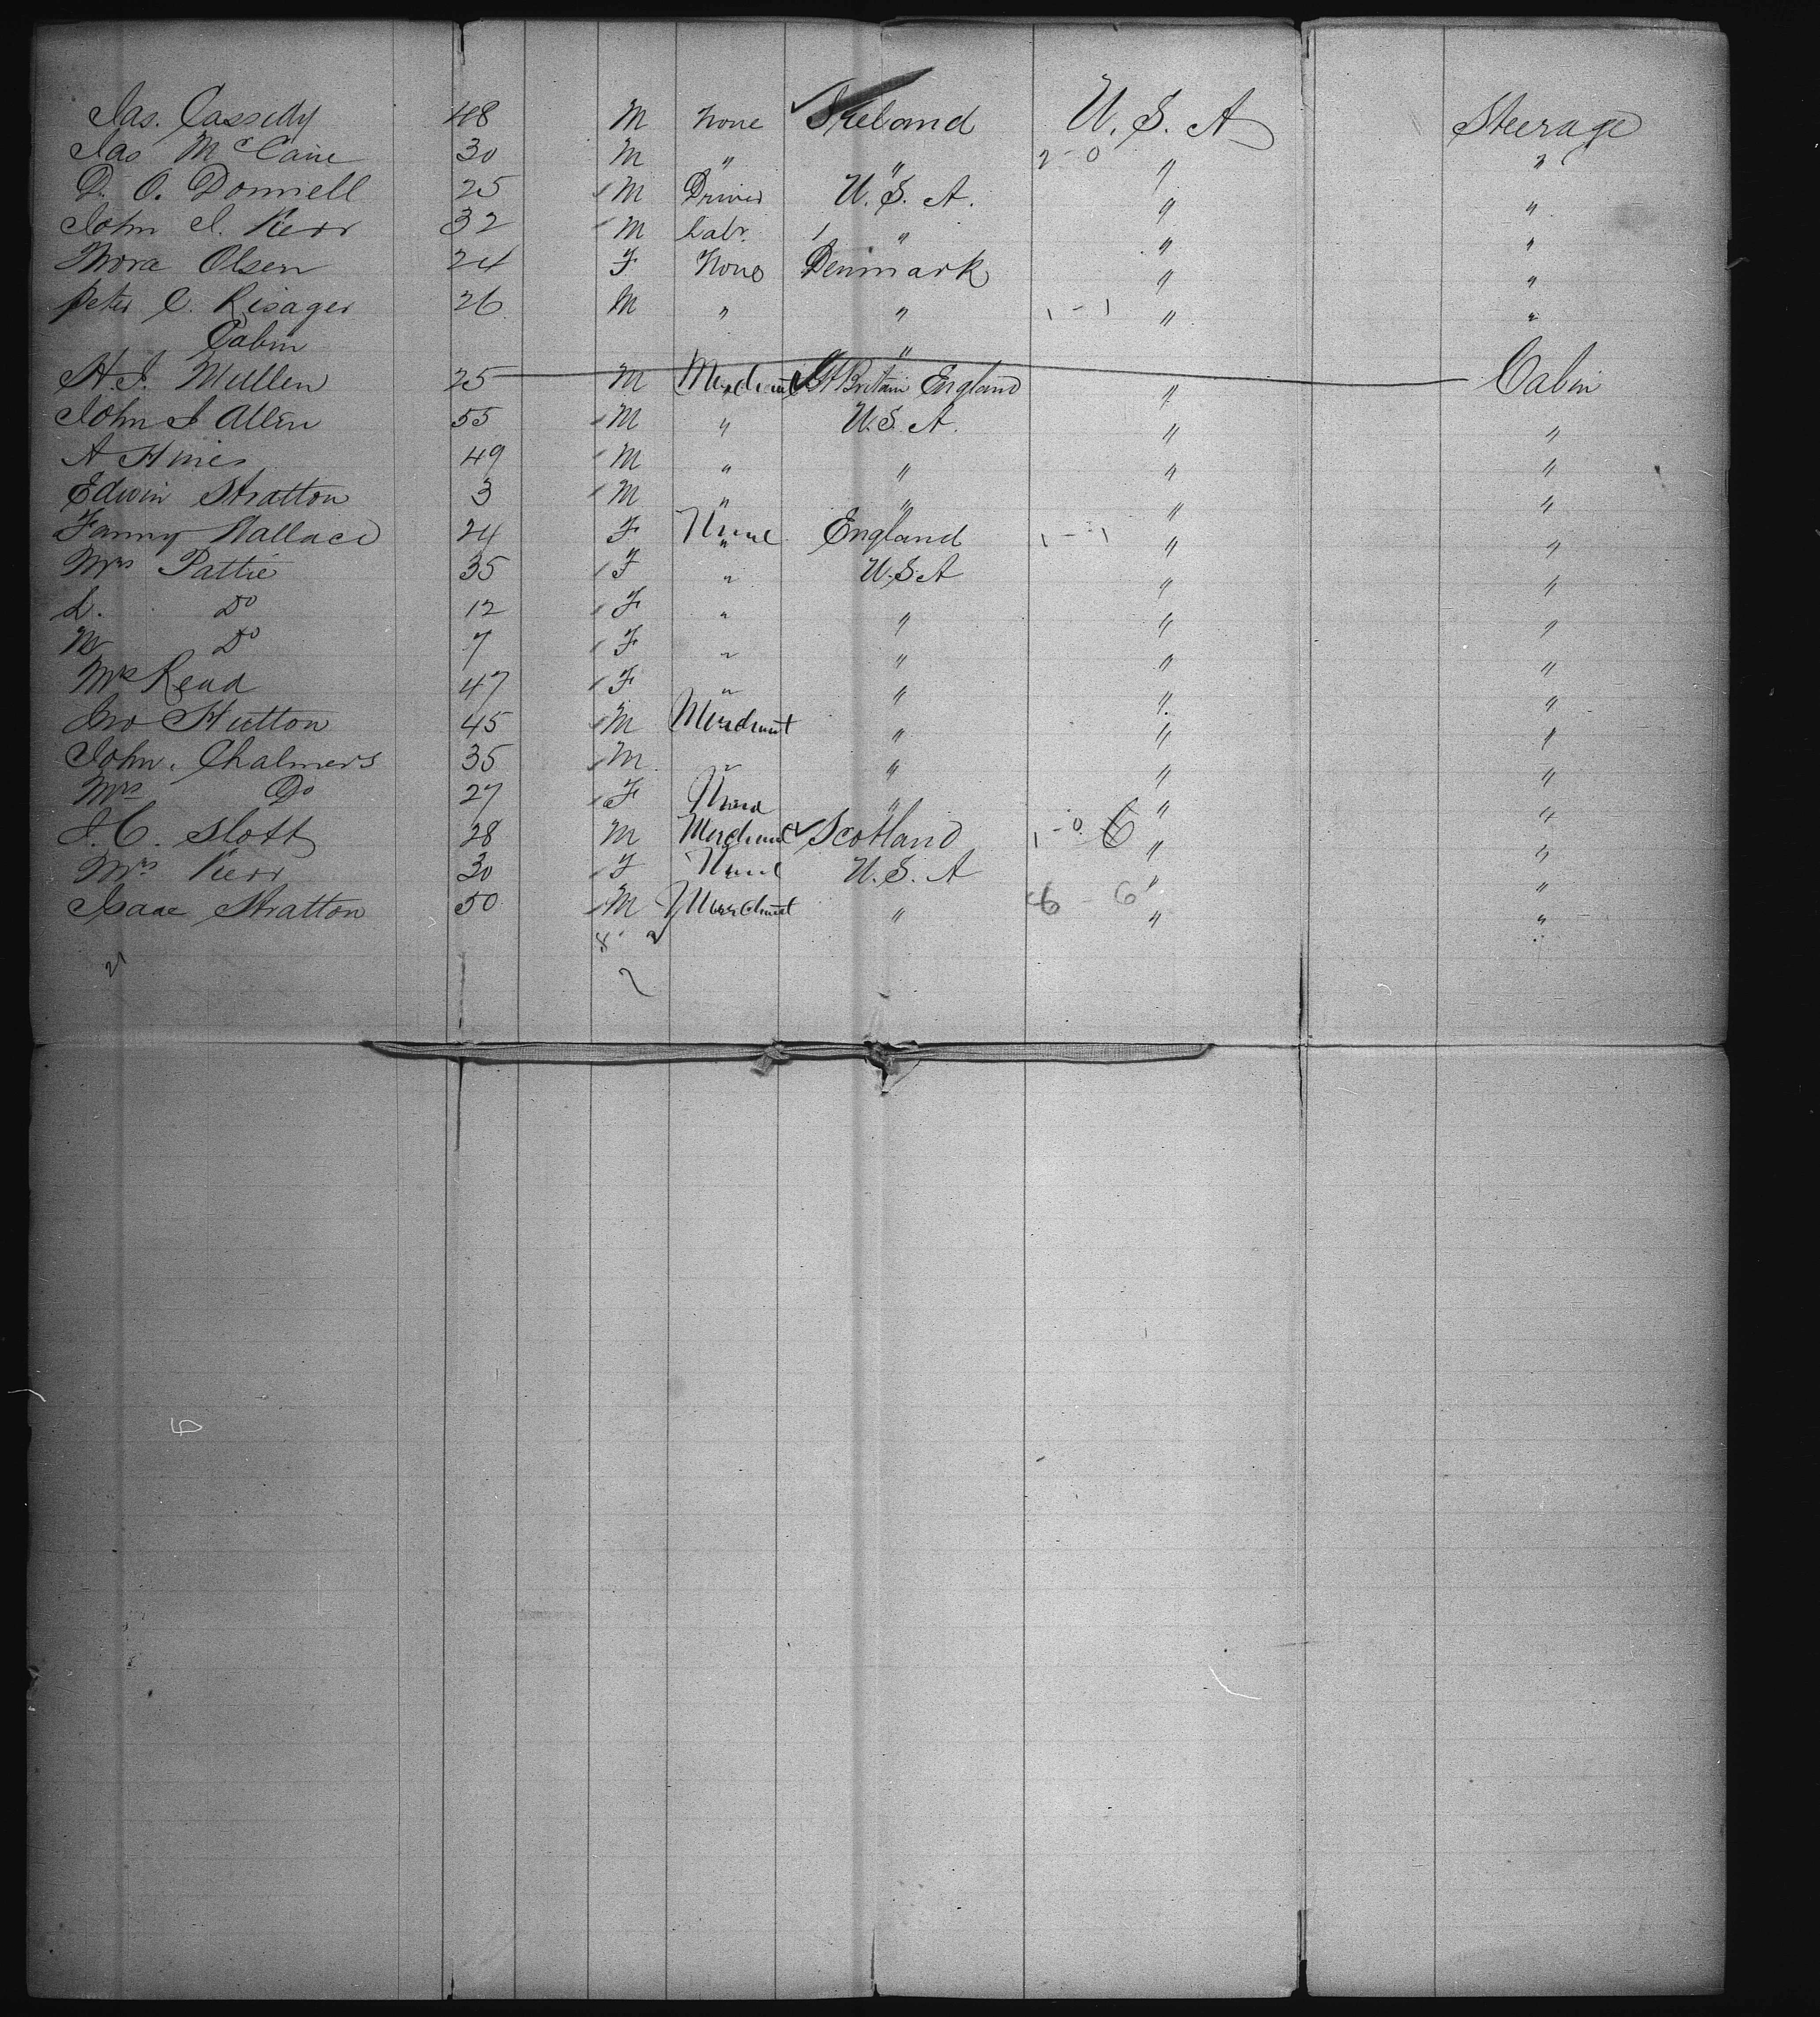 Jas. Cassedy 48 M None Ireland U. S. A Steerage
Jas McCaine 30 M " " 2-0 " "
D. O. Donnell 25 M Driver U. S. A. " "
John J. Kerr 32 M Labr. " " "
Nora Olsen 24 F None Denmark " "
Peter C. Risager 26 M " " 1-1 " "
Cabin "
H. J. Mullen 25 M Merchant Gt Britain England " Cabin
John J Allen 55 M " U.S. A. " "
A Hines 49 M " " " "
Edwin Stratton 3 M " " " "
Fanny Wallace 24 F England 1-1 " "
Mrs Pattie 35 F " U.S.A " "
L. Do 12 F " " " "
M Do 7 F " " " "
Mrs Read 47 F " " " "
Jno Hutton 45 M Merchant " " "
John. Chalmers 35 M " " " "
Mrs Do 27 F " " "
J. C. Slott 28 M Merchant Scotland 1-0 6 " "
Mrs Kerr 30 F U. S. A " "
Isaac Stratton 50 M Merchant " 6-6 " "
8
21